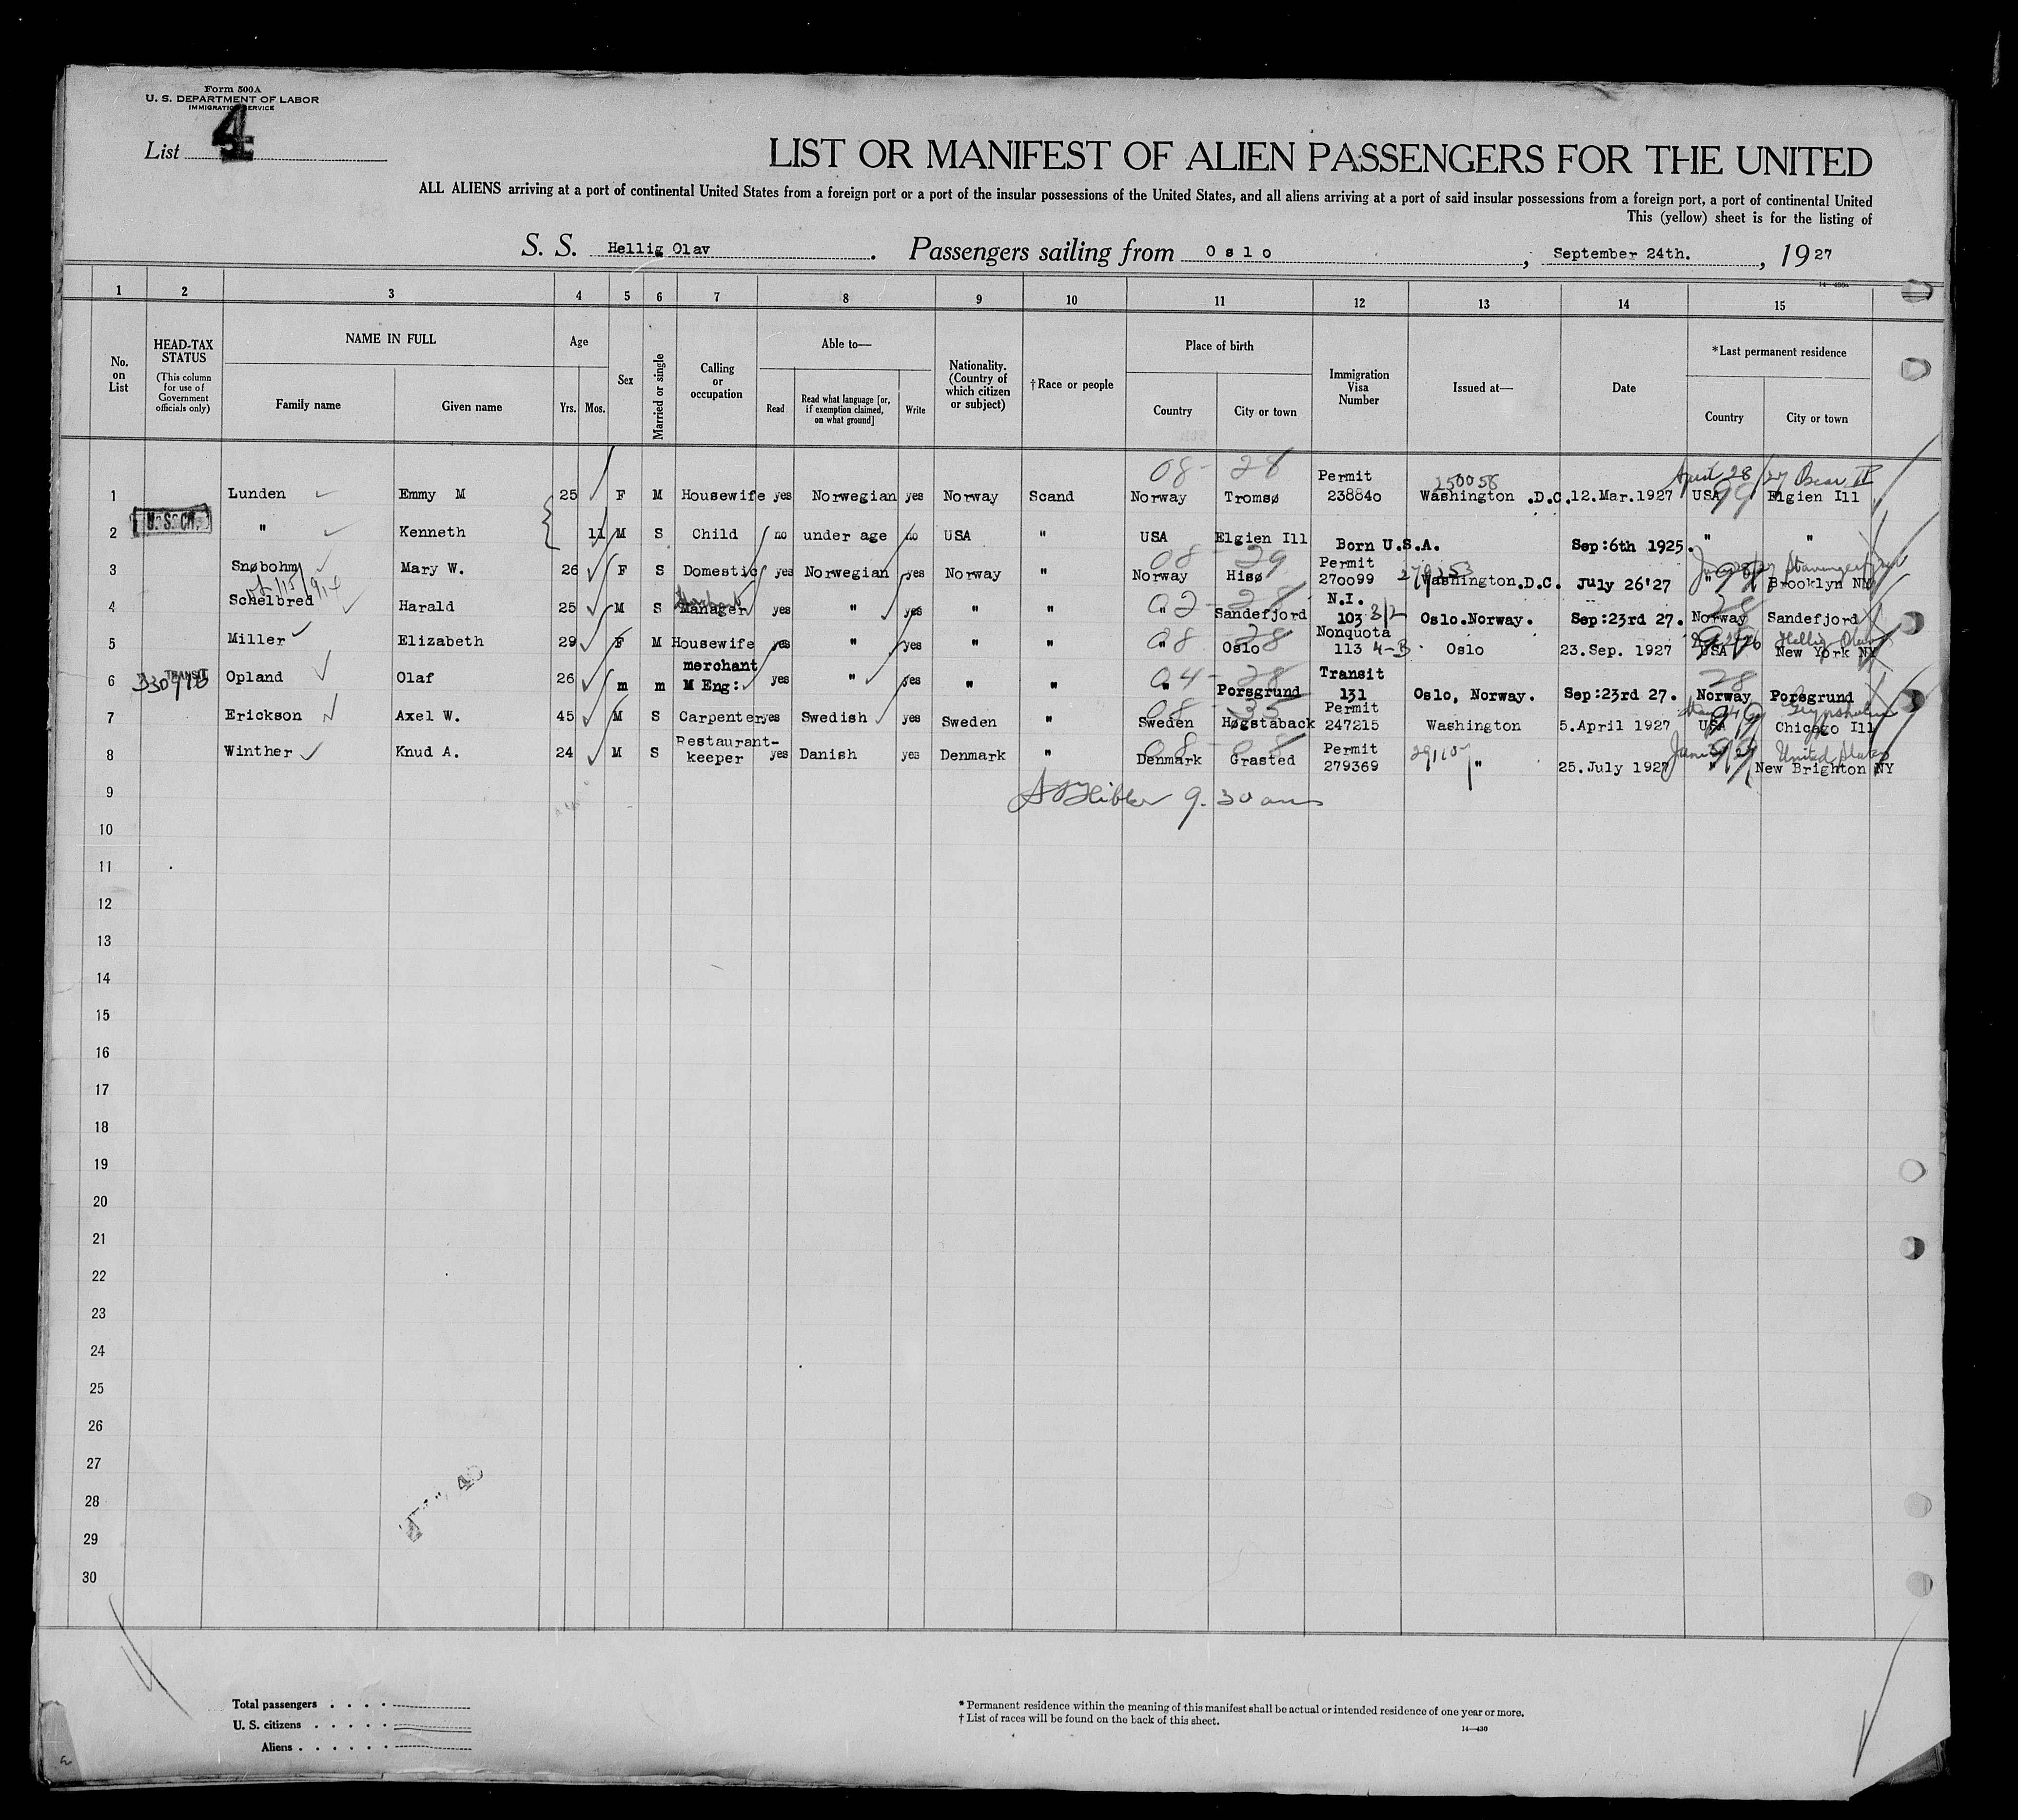 Form 500A
U. S. DEPARTMENT OF LABOR
IMMIGRATION SERVICE
List 4
LIST OR MANIFEST OF ALIEN PASSENGERS FOR THE UNITED
ALL ALIENS arriving at a port of continental United States from a foreign port or a port of the insular possessions of the United States, and all aliens arriving at a port of said insular possessions from a foreign port, a port of continental United
This (yellow) sheet is for the listing of
S. S. Hellig Olav. Passengers sailing from Oslo, September 24th., 1927
1 2 3 4 5 6 7 8 9 10 11 12 13 14 15
No. on List
HEAD-TAX STATUS (This column for use of Government officials only)
NAME IN FULL
Family name Given name
Age
Yrs. Mos.
Sex
Married or single
Calling or occupation
Able to—
Read Read what language [or, if exemption claimed, on what ground] Write
Nationality. (Country of which citizen or subject)
†Race or people
Place of birth
Country City or town
Immigration Visa Number
Issued at—
Date
*Last permanent residence
Country City or town
08- 28 Permit 250058 April 28/27 Oscar II
1 Lunden Emmy M 25 F M Housewife yes Norwegian yes Norway Scand Norway Tromsø 238840 Washington .D.C. 12.Mar.1927 USA 99 Elgien Ill
U.S. Cit.
2 " Kenneth 11 M S Child no under age no USA " USA Elgien Ill Born U.S.A. Sep:6th 1925. " "
08 - 29 Permit
3 Snøbohm Mary W. 26 F S Domestic yes Norwegian yes Norway " Norway Hisø 270099 Washington.D.C. July 26'27 " Brooklyn NY
02 - 28 N.I. 28
4 Schelbred Harald 25 M S Manager yes " yes " " " Sandefjord 103 3/2 Oslo.Norway. Sep:23rd 27. Norway Sandefjord
08 - 28 Nonquota Hellig Olav
5 Miller Elizabeth 29 F M Housewife yes " yes " " " Oslo 113 4-B Oslo 23.Sep. 1927 USA New York NY
TRANSIT merchant 04 - 28 Transit 28
6 Opland Olaf 26 m m M Eng: yes " yes " " " Porsgrund 131 Oslo, Norway. Sep:23rd 27. Norway Porsgrund
08 - 35 Permit
7 Erickson Axel W. 45 M S Carpenter yes Swedish yes Sweden " Sweden Høgstaback 247215 Washington 5.April 1927 USA Chicago Ill
Restaurant- Permit United States
8 Winther Knud A. 24 M S keeper yes Danish yes Denmark " Denmark Grasted 279369 " 25.July 1927 " New Brighton NY
9 9.30 am
10
11
12
13
14
15
16
17
18
19
20
21
22
23
24
25
26
27
28
29
30
Total passengers . . . .
U. S. citizens . . . . .
Aliens . . . . . .
* Permanent residence within the meaning of this manifest shall be actual or intended residence of one year or more.
† List of races will be found on the back of this sheet.
14—430